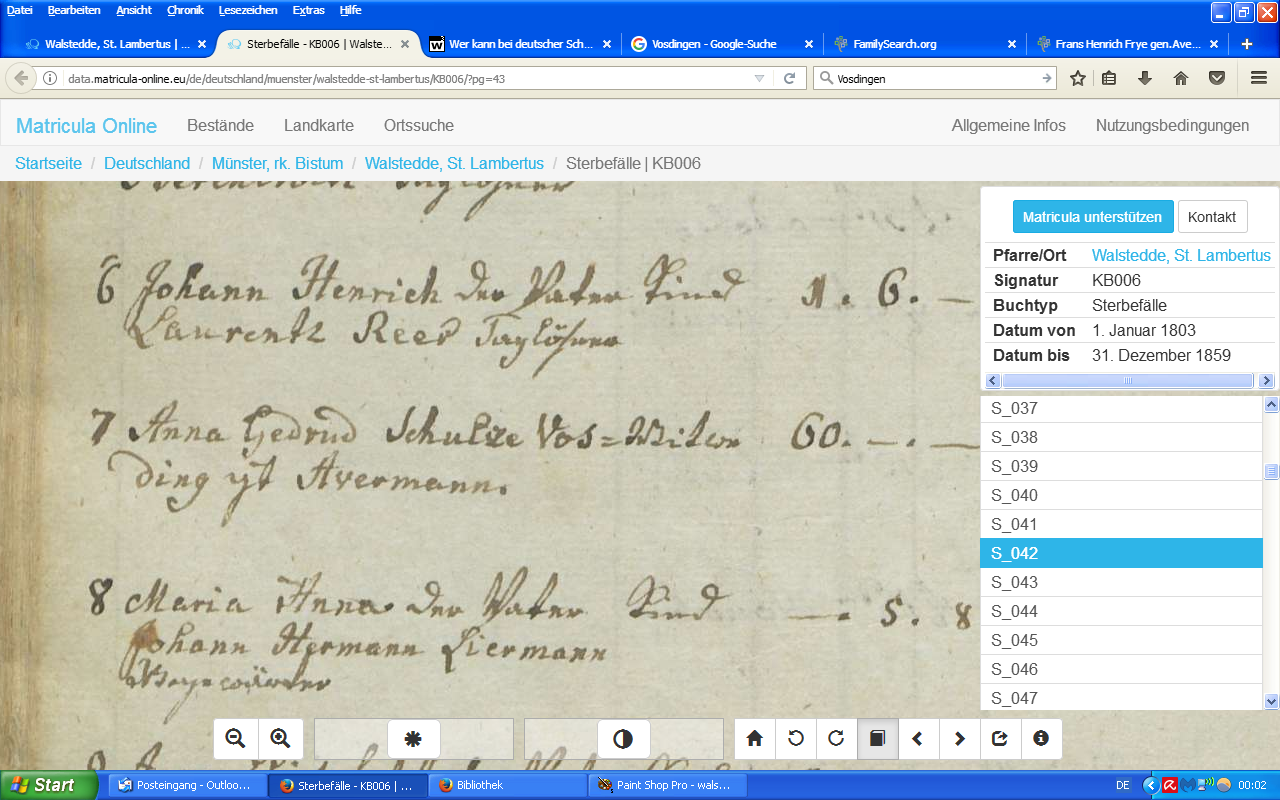 Datei Bearbeiten Ansicht Chronik Lesezeichen Extras Hilfe
Walstedde, St. Lambertus | ... Sterbefälle - KB006 | Walste... Wer kann bei deutscher Sch... Vosdingen - Google-Suche FamilySearch.org Frans Henrich Frye gen.Ave...
data.matricula-online.eu/de/deutschland/muenster/walstedde-st-lambertus/KB006/?pg=43 Vosdingen
Matricula Online Bestände Landkarte Ortssuche Allgemeine Infos Nutzungsbedingungen
Startseite / Deutschland / Münster, rk. Bistum / Walstedde, St. Lambertus / Sterbefälle | KB006
Taglöhner
6 Johann Henrich der Vater Kind 1. 6. —
Laurentz Reer Taglöhner
7 Anna Gedrud Schulze Vos= Witwe 60. —. —
ding yt Avermann.
8 Maria Anna der Vater Kind —. 5. 8
Johann Hermann Liermann
9
Matricula unterstützen Kontakt
Pfarre/Ort Walstedde, St. Lambertus
Signatur KB006
Buchtyp Sterbefälle
Datum von 1. Januar 1803
Datum bis 31. Dezember 1859
S_037
S_038
S_039
S_040
S_041
S_042
S_043
S_044
S_045
S_046
S_047
Start Posteingang - Outloo... Sterbefälle - KB006 | ... Bibliothek Paint Shop Pro - wals... DE 00:02